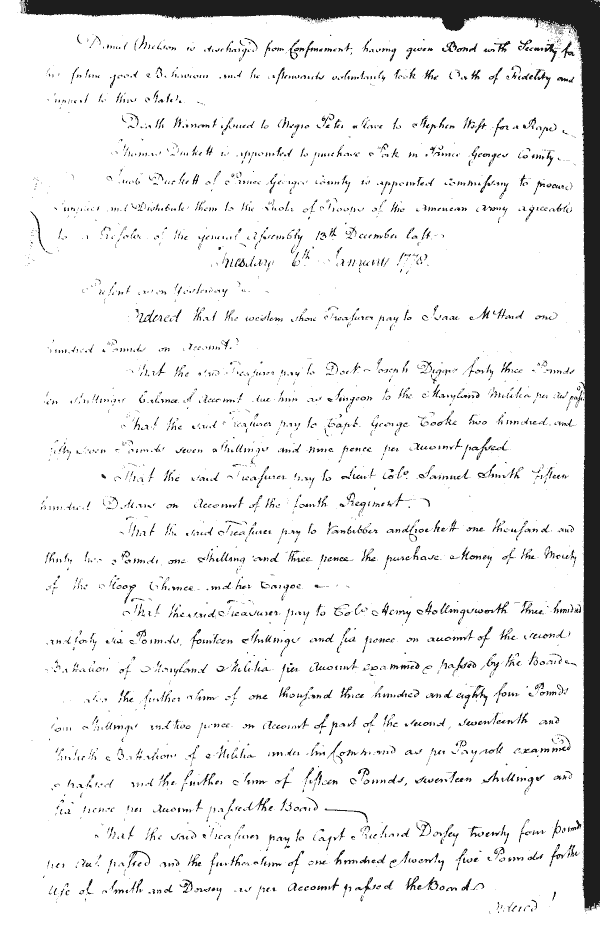 Daniel Melson is discharged from Confinement, having given Bond with Security for
his future good Behaviour and he afterwards voluntarily took the Oath of Fidelity and
Support to this State.
Death Warrant issued to Negro Peter Slave to Stephen West for a Rape
Thomas Duckett is appointed to purchase Pork in Prince Georges County
Jacob Duckett of Prince Georges County is appointed Commissary to procure
and Distribute them to the Quota of Troops of the American Army agreeable
to a Resolve of the General Assembly 13th December last.
Tuesday 6th January 1778.
Present as on Yesterday
Ordered that the western shore Treasurer pay to Isaac McHard one
hundred Pounds on Account.
That the said Treasurer pay to Doctr Joseph Digges forty three Pounds
ten shillings balance of Account due him as Surgeon to the Maryland Militia per Acct passd.
That the said Treasurer pay to Capt. George Cooke two hundred and
fifty seven Pounds seven Shillings and nine pence per Account passed
That the said Treasurer pay to Lieut Colo. Samuel Smith fifteen
hundred Dollars on Account of the fourth Regiment.
That the said Treasurer pay to Vanbibber and Crockett one thousand and
thirty two Pounds one Shilling and three pence the purchase Money of the Moiety
of the Sloop Chance and her Cargoe
That the said Treasurer pay to Colo. Henry Hollingsworth three hundred
and forty six Pounds, fourteen Shillings and six pence on account of the second
Battalion of Maryland Militia per Account examined & passed by the Board
the further Sum of one thousand three hundred and eighty four Pounds
four Shillings and two pence on Account of part of the second, seventeenth and
thirtieth Battalion of Militia under his Command as per Payroll examined
& passed and the further Sum of fifteen Pounds, seventeen shillings and
six pence per Account passed the Board
That the said Treasurer pay to Capt Richard Dorsey twenty four Pounds
per Acct. passed and the further Sum of one hundred & twenty five Pounds for the
Use of Smith and Dorsey as per Account passed the Board
Ordered